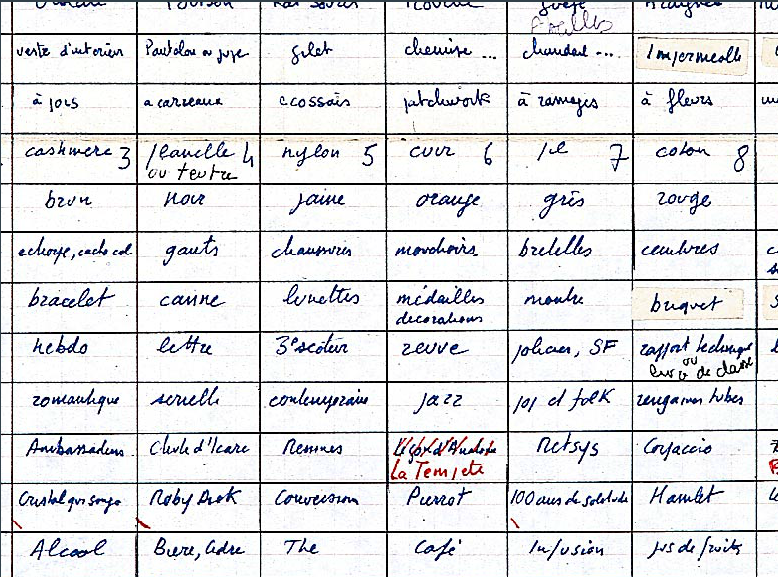 veste d'interieur Pantalon ou jupe gilet chemise ... chandail ... Impermeable
à pois a carreaux ecossais patchwork à ramages à fleurs
cashmere 3 flanelle 4 nylon 5 cuir 6 7 coton 8
ou feutre
brun noir jaune orange gris rouge
echarpe, cache col gants chaussures mouchoirs bretelles ceintures
bracelet canne lunettes médailles montre briquet
decorations
hebdo lettre 3e secteur revue policier, SF rapport technique
ou
livre de classe
romantique serielle contemporaine jazz pop et folk rengaines tubes
Ambassadeurs Chute d'Icare Menines Metsys Carpaccio
La Tempete
Cristal qui songe Moby Dick Conversion Pierrot 100 ans de solitude Hamlet
Alcool Biere, Cidre The Café Infusion jus de fruits